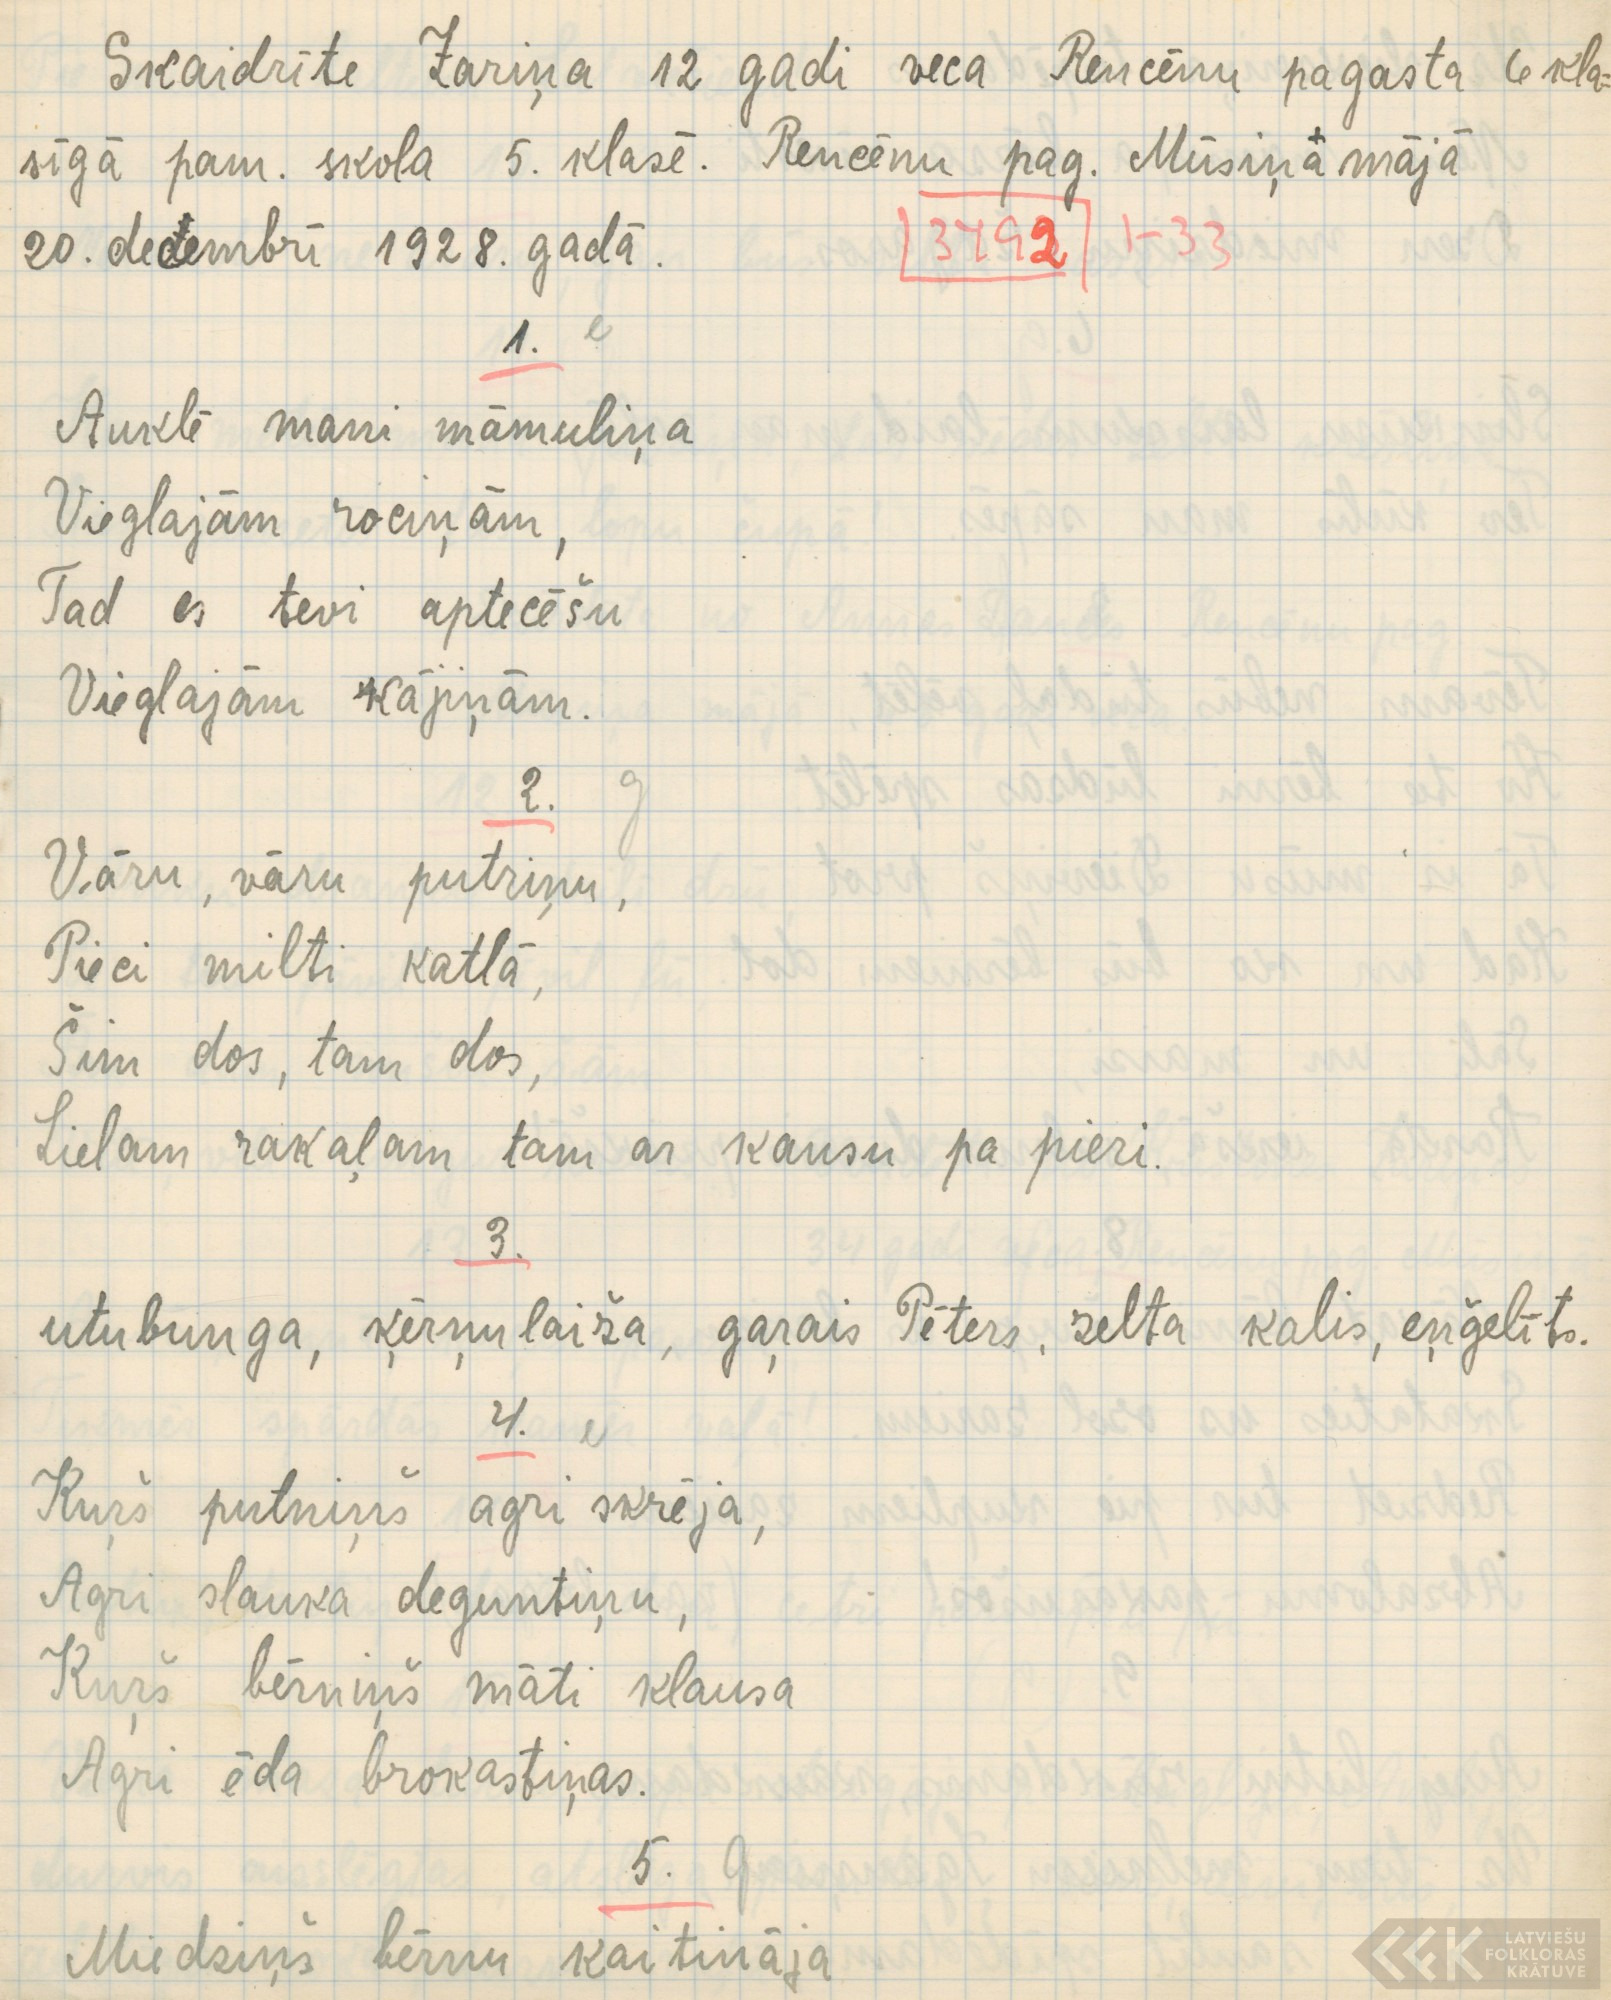 Skaidrīte Zariņa 12 gadi veca Rencēnu pagasta 6 kla-
sīgā pam. skola 5. klasē. Rencēnu pag. Mūsiņā mājā
20. decembrī 1928. gadā. 3492 1-33
1. e
Auklē mani māmuliņa
Vieglajām rociņām,
Tad es tevi aptecēšu
Vieglajām kājiņām.
2. g
Vāru, vāru putriņu,
Pieci milti katlā,
Šim dos, tam dos,
Lielam rakaļam tam ar kausu pa pieri.
3.
utubunga, ķērņulaiža, gaŗais Pēters, zelta kalis, eņģelīts.
4. e
Kuŗš putniņš agri skrēja,
Agri slauka deguntiņu,
Kuŗš bērniņš māti klausa
Agri ēda brokastiņas.
5. g
Miedziņš bērnu kaitināja
LATVIEŠU
FOLKLORAS
KRĀTUVE